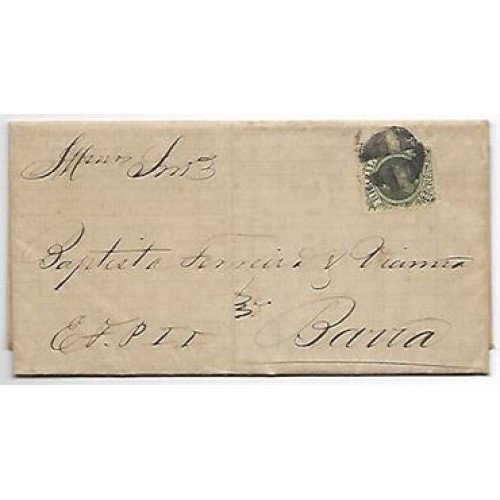 Illmos Snrs
Baptista Ferreira & Vianna
E. F. P II
Barra